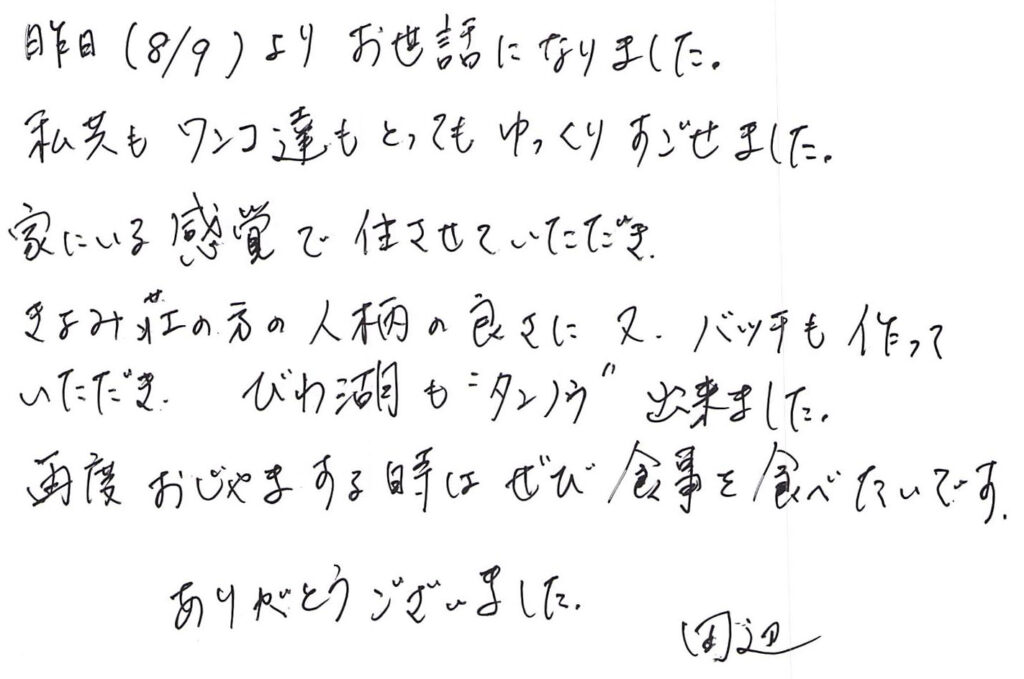 昨日(8/9)より お世話になりました。
私共も ワンコ達もとっても ゆっくり すごせました。
家にいる 感覚で 住させていただき.
きよみ荘の方の 人柄の 良さに 又、バッチも 作って
いただき. びわ湖も "タンノウ" 出来ました。
再度 おじゃまする時は ぜひ 食事を食べたいです.
ありがとうございました.
田辺